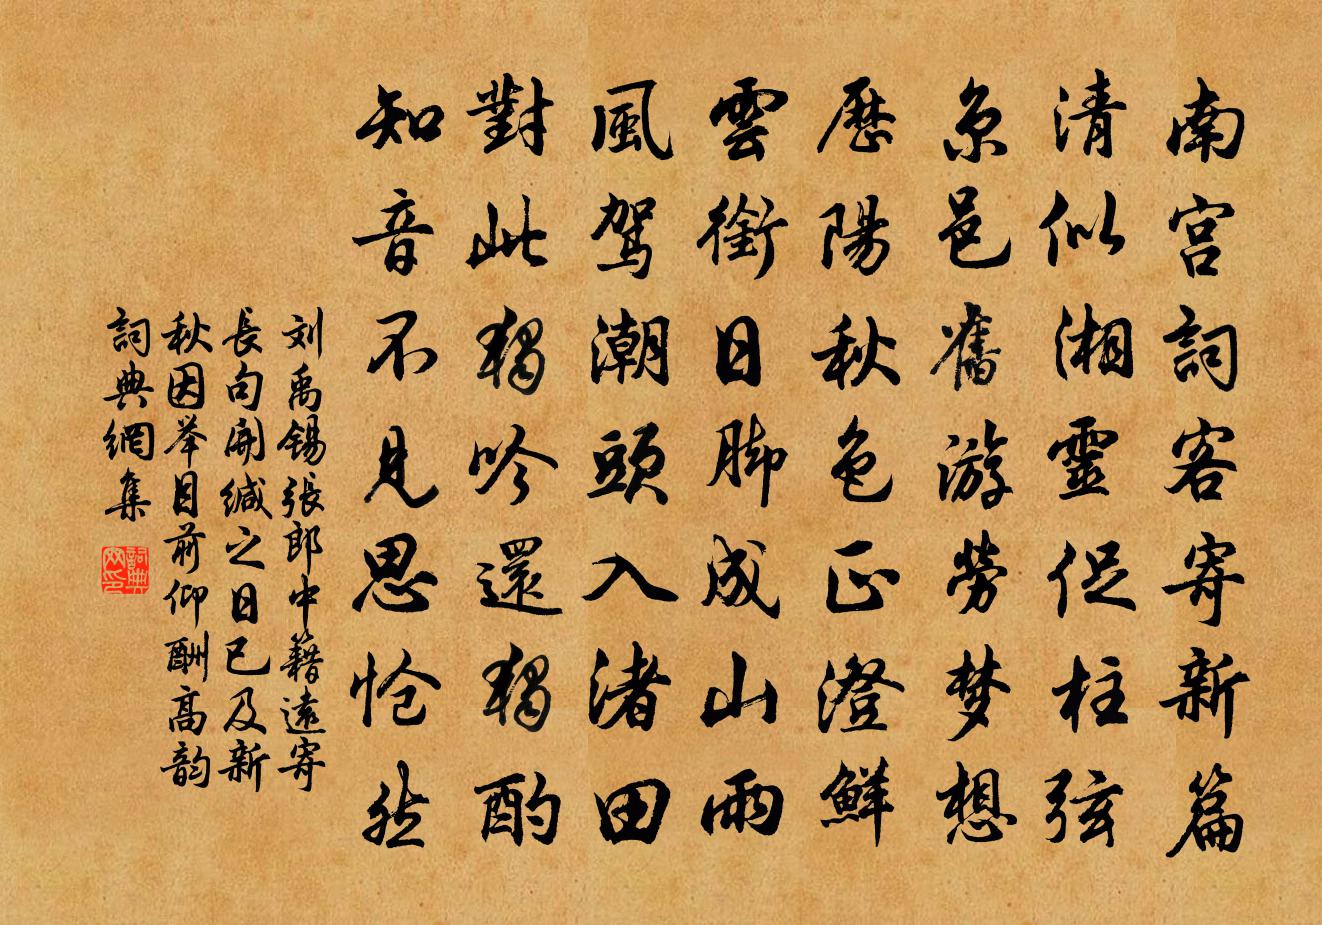 南宫詞客寄新篇
清似湘靈促柱弦
京邑舊游勞梦想
歷陽秋色正澄鮮
雲銜日脚成山雨
風駕潮頭入渚田
對此獨吟還獨酌
知音不見思怆然
刘禹锡張郎中籍遠寄
長句開緘之日已及新
秋因举目前仰酬高韵
詞典網集
詞典网印